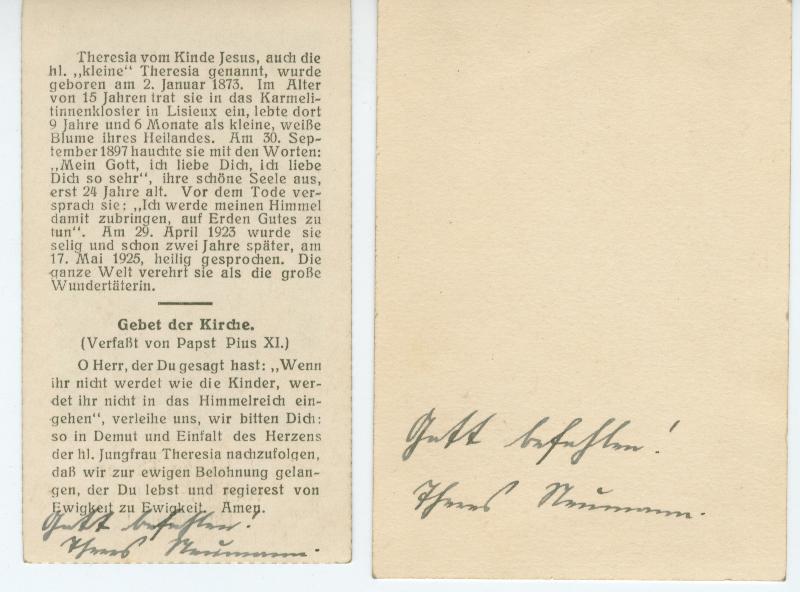 Theresia vom Kinde Jesus, auch die
hl. „kleine“ Theresia genannt, wurde
geboren am 2. Januar 1873. Im Alter
von 15 Jahren trat sie in das Karmeli-
tinnenkloster in Lisieux ein, lebte dort
9 Jahre und 6 Monate als kleine, weiße
Blume ihres Heilandes. Am 30. Sep-
tember 1897 hauchte sie mit den Worten:
„Mein Gott, ich liebe Dich, ich liebe
Dich so sehr“, ihre schöne Seele aus,
erst 24 Jahre alt. Vor dem Tode ver-
sprach sie: „Ich werde meinen Himmel
damit zubringen, auf Erden Gutes zu
tun“. Am 29. April 1923 wurde sie
selig und schon zwei Jahre später, am
17. Mai 1925, heilig gesprochen. Die
ganze Welt verehrt sie als die große
Wundertäterin.
Gebet der Kirche.
(Verfaßt von Papst Pius XI.)
O Herr, der Du gesagt hast: „Wenn
ihr nicht werdet wie die Kinder, wer-
det ihr nicht in das Himmelreich ein-
gehen“, verleihe uns, wir bitten Dich:
so in Demut und Einfalt des Herzens
der hl. Jungfrau Theresia nachzufolgen,
daß wir zur ewigen Belohnung gelan-
gen, der Du lebst und regierest von
Ewigkeit zu Ewigkeit. Amen.
Gott befohlen!
Theres Neumann.
Gott befohlen!
Theres Neumann.